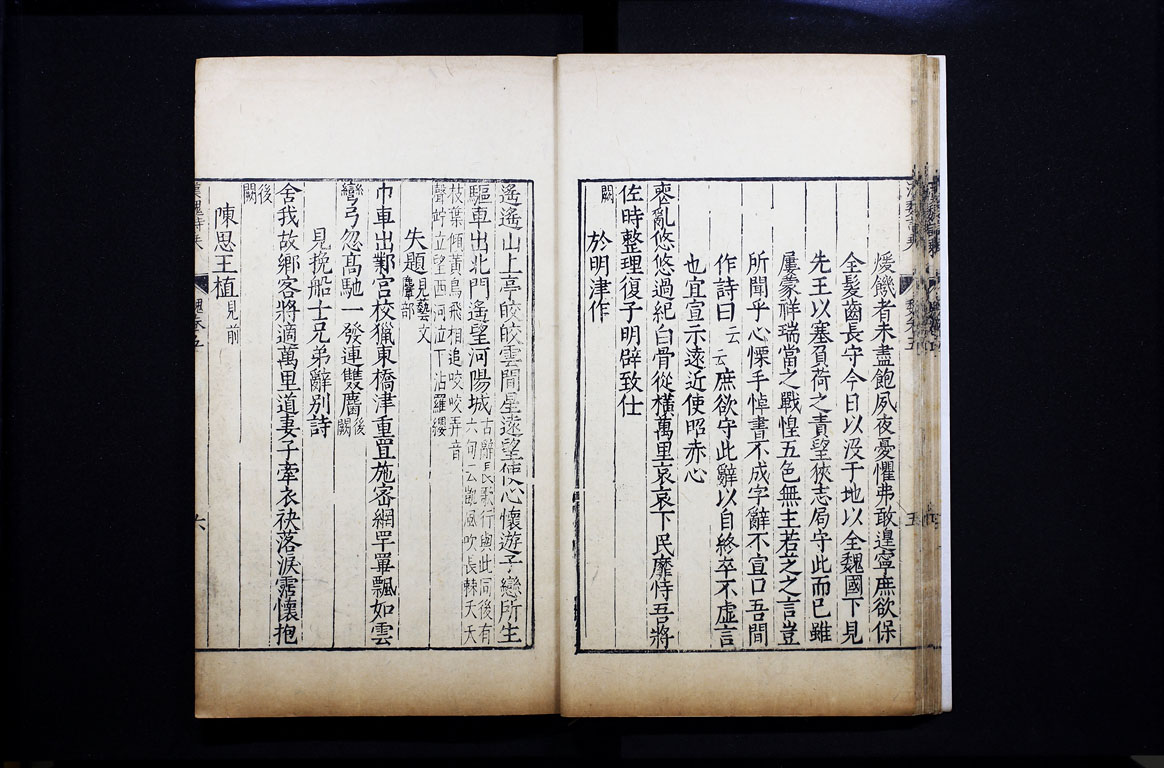 煖饑者未盡飽夙夜憂懼弗敢遑寧庶欲保
全髮齒長守今日以沒于地以全魏國下見
先王以塞負荷之責望狹志局守此而已雖
屢蒙祥瑞當之戰惶五色無主若芝之言豈
所聞乎心慄手悼書不成字辭不宣口吾間
作詩曰云云庶欲守此辭以自終卒不虛言
也宜宣示遠近使昭赤心
喪亂悠悠過紀白骨從橫萬里哀哀下民靡恃吾將
佐時整理復子明辟致仕
闕
於明津作
遙遙山上亭皎皎雲間星遠望使心懷遊子戀所生
驅車出北門遙望河陽城
古辭長歌行與此同後有
六句云凱風吹長棘夭夭
枝葉傾黃鳥飛相追咬咬弄音
聲竚立望西河泣下沾羅纓
失題
見藝文
鷹部
巾車出鄴宮校獵東橋津重罝施密網罕罼飄如雲
彎弓忽高馳一發連雙麏
後闕
見挽船士兄弟辭別詩
舍我故鄉客將適萬里道妻子牽衣袂落淚霑懷抱
後闕
陳思王植
見前
魏卷五
六